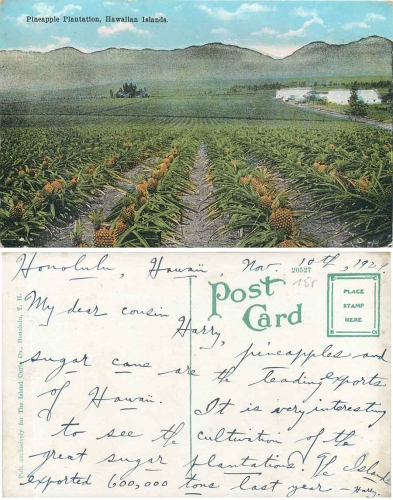 Pineapple Plantation, Hawaiian Islands.
Honolulu, Hawaii, Nov. 10th,
20527
Post
Card
PLACE
STAMP
HERE
My dear cousin
Harry,
pineapples and
sugar cane are the leading exports
of Hawaii. It is very interesting
to see the cultivation of the
great sugar plantations. The Islands
exported 600,000 tons last year — Harry.
Pub. exclusively for The Island Curio Co., Honolulu, T. H.